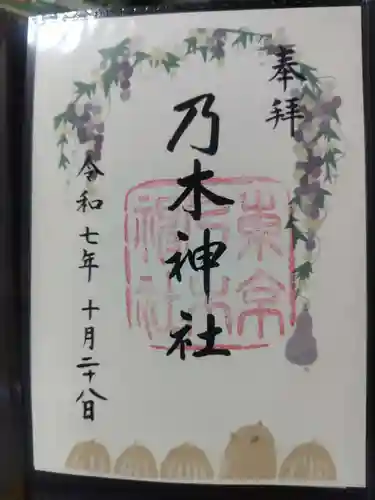 奉拝
乃木神社
東京
乃木
神社
令和七年 十月二十八日